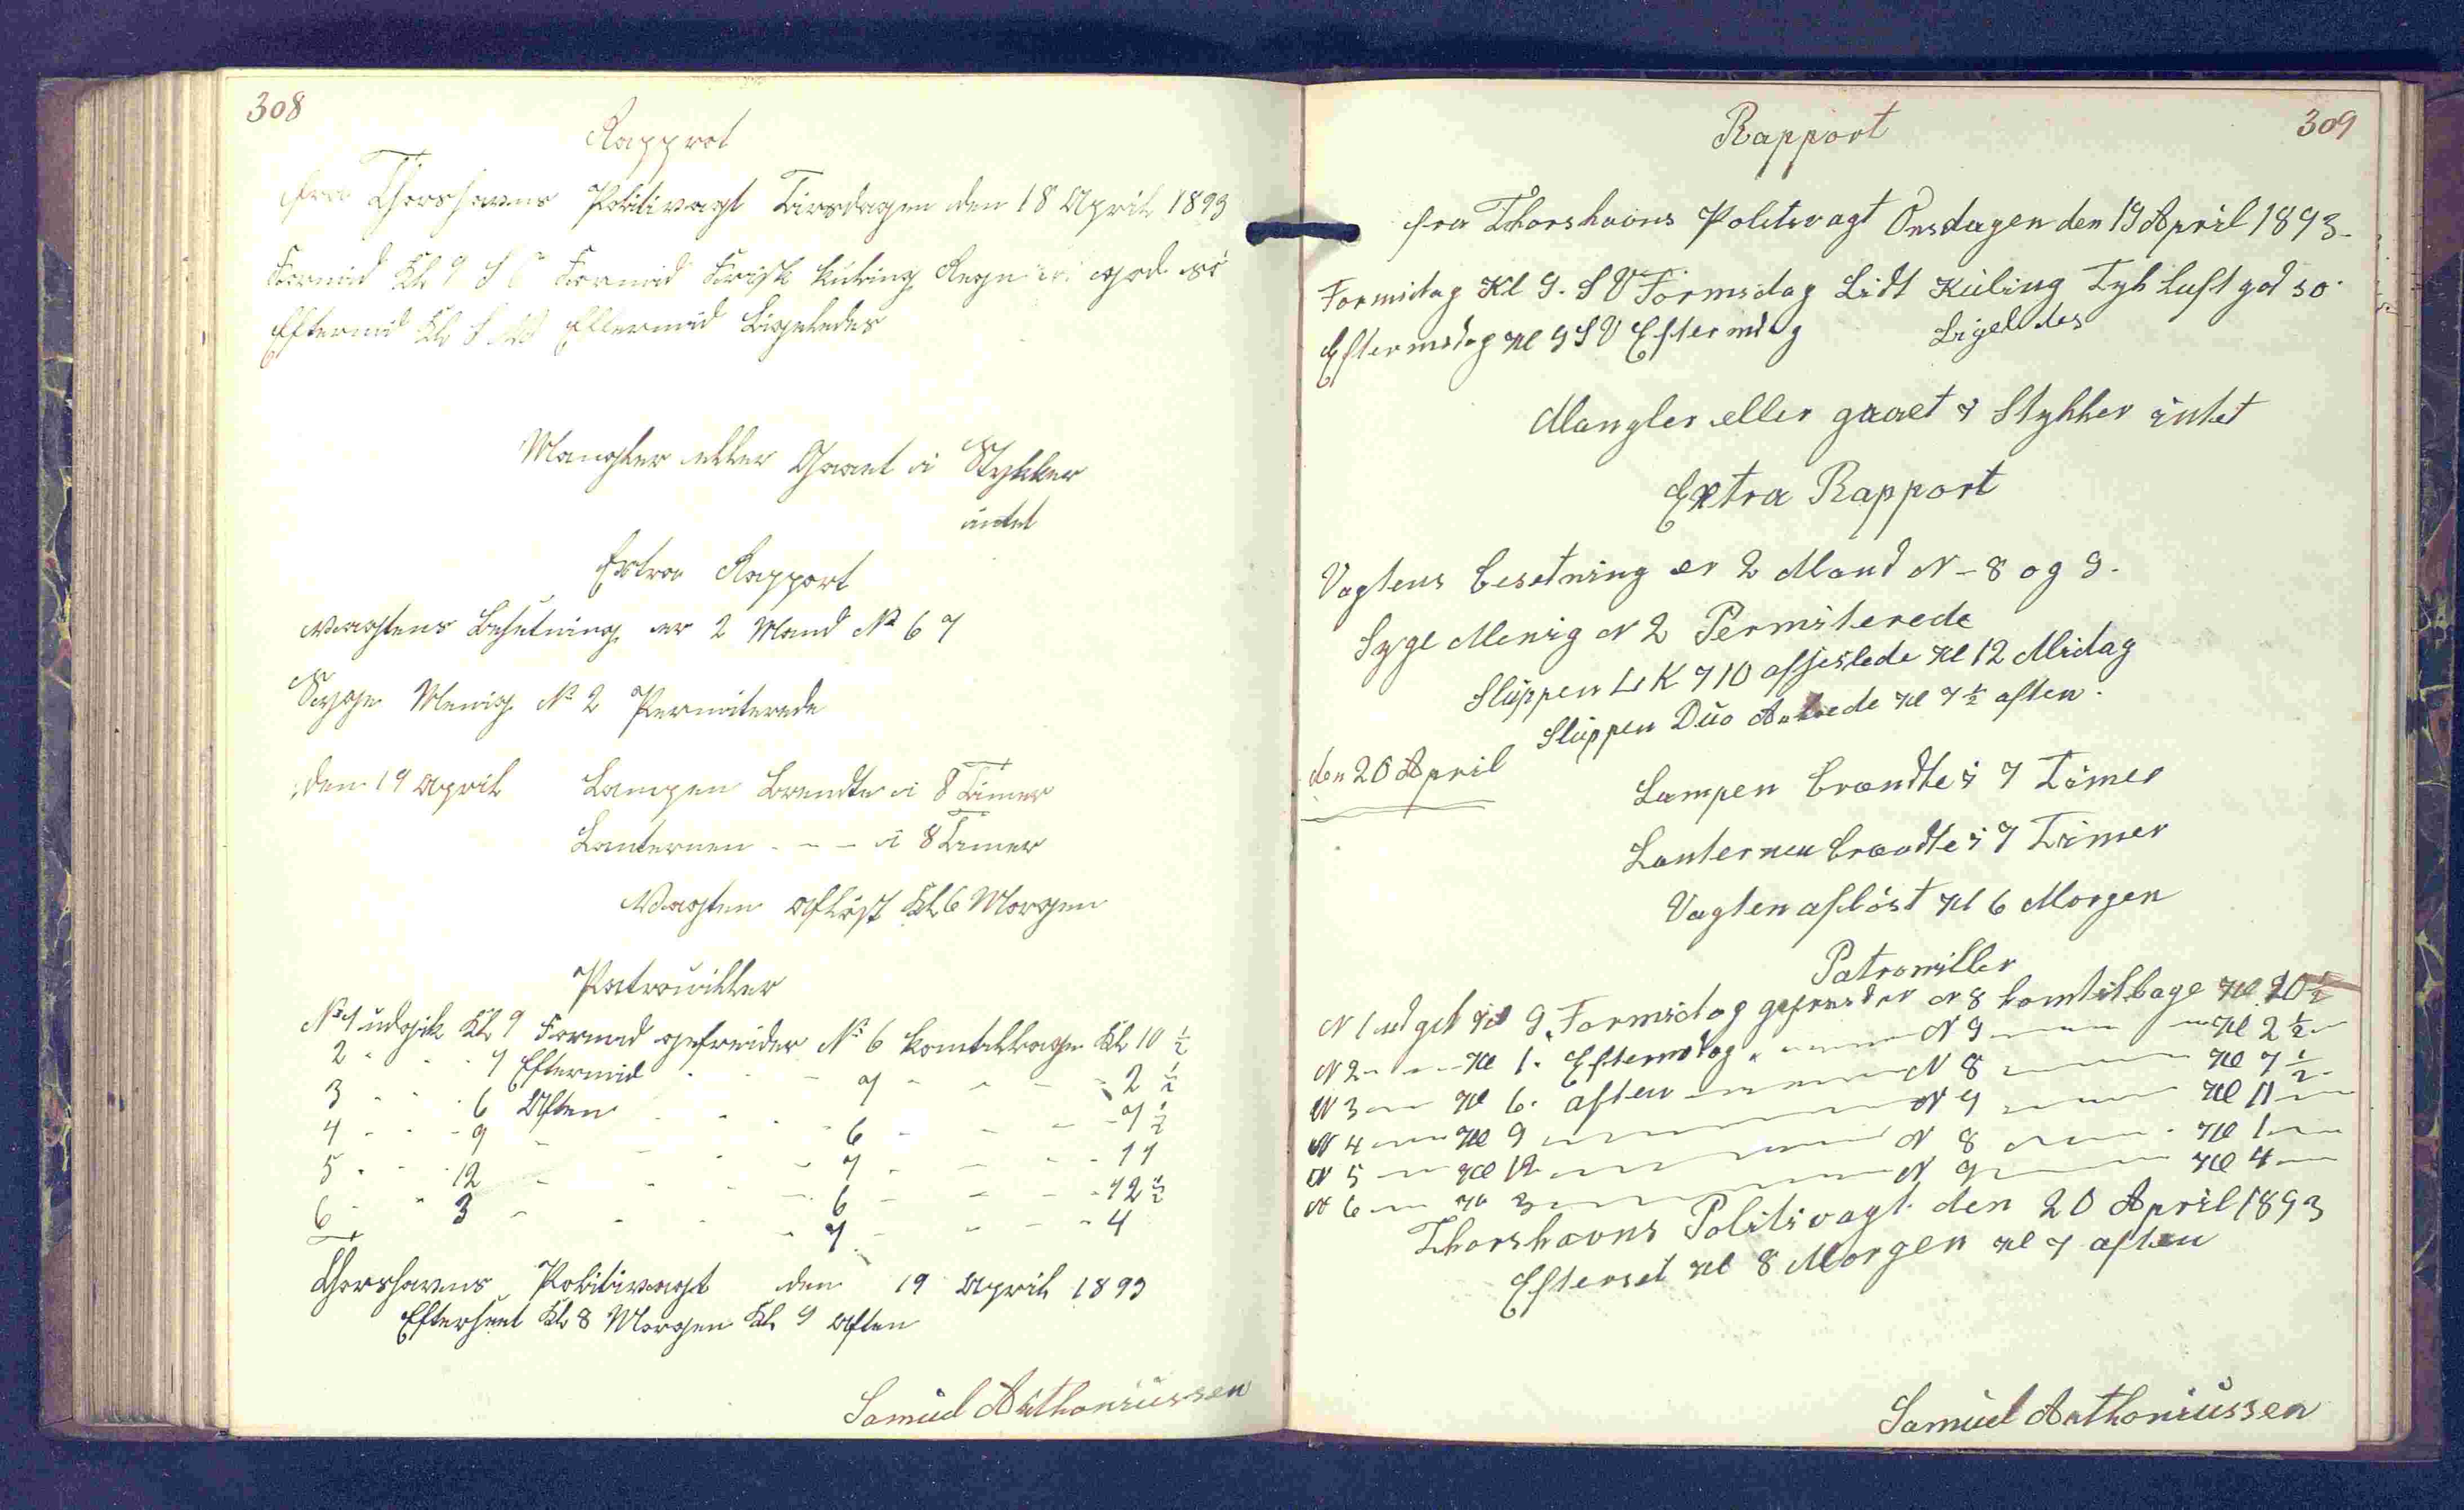 308
Rapprot
fra Thorshavns Politivagt Tirsdagen den 18 April 1893
Formid Kl 9 S O Formid Frisk Kuling Regn god sö
Eftermid Kl S Eftermid Ligeledes
Mangler eller Gaaet i Stykker
intet
Extra Rapport
Vagtens Besetning er 2 Mand No 6 7
Syge Menig No 2 Permiterede
den 19 April Lampen Brendte i 8 Timer
Lanternen - - - i 8 Timer
Vagten aflöst Kl 6 Morgen
Patrouiller
No 1 udgik Kl 9 Formid gefreider No 6 komtilbage Kl 10 1/2
2 - - - 1 Eftermid - - - 7 - - - - 2 1/2
3 - - - 6 Aften - - - 6 - - - - 7 1/2
4 - - - 9 - - - - 7 - - - - 11
5 - - - 12 - - - - 6 - - - - 12 1/2
6 - - - 3 - - - - 7 - - - - 4
Thorshavns Politivagt den 19 April 1893
Efterseet Kl 8 Morgen Kl 9 Aften
Samuel Anthoniussen
309
Rapport
fra Thorshavns Politivagt Onsdagen den 19 April 1893.
Formidag Kl 9. S V Formidag Lidt Kuling Tyk Luft god sö.
Eftermidag Kl 9 S V Eftermidag Ligeledes
Mangler eller gaaet i Stykker intet
Extra Rapport
Vagtens besetning er 2 Mand N - 8 og 9.
Syge Menig N 2 Permiterede
Sluppen L K 710 afseilede Kl 12 Midag
Sluppen Duo Ankrede Kl 7 1/2 aften.
den 20 April
Lampen brændte i 7 Timer
Lanternen brændte i 7 Timer
Vagten aflöst Kl 6 Morgen
Patrouiller
N 1 udgik Kl 9. Formidag gefreider N 8 komtilbage Kl 10 1/2
N 2 - - - Kl 1. Eftermidag - - - N 9 - - - Kl 2 1/2
N 3 - - Kl 6. aften - - - N 8 - - - Kl 7 1/2
N 4 - - Kl 9 - - - N 9 - - - Kl 11
N 5 - - Kl 12 - - - N 8 - - - Kl 1
N 6 - - Kl 3 - - - N 9 - - - Kl 4
Thorshavns Politivagt den 20 April 1893
Efterset Kl 8 Morgen Kl 7 aften
Samuel Anthoniussen